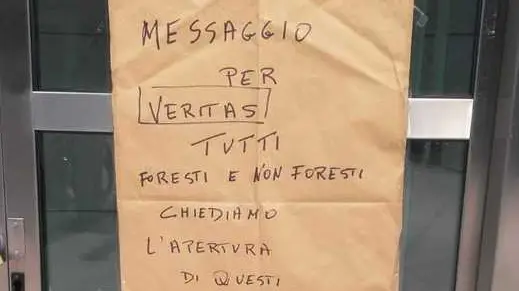 MESSAGGIO
PER
VERITAS
TUTTI
FORESTI E NON FORESTI
CHIEDIAMO
L'APERTURA
DI QUESTI